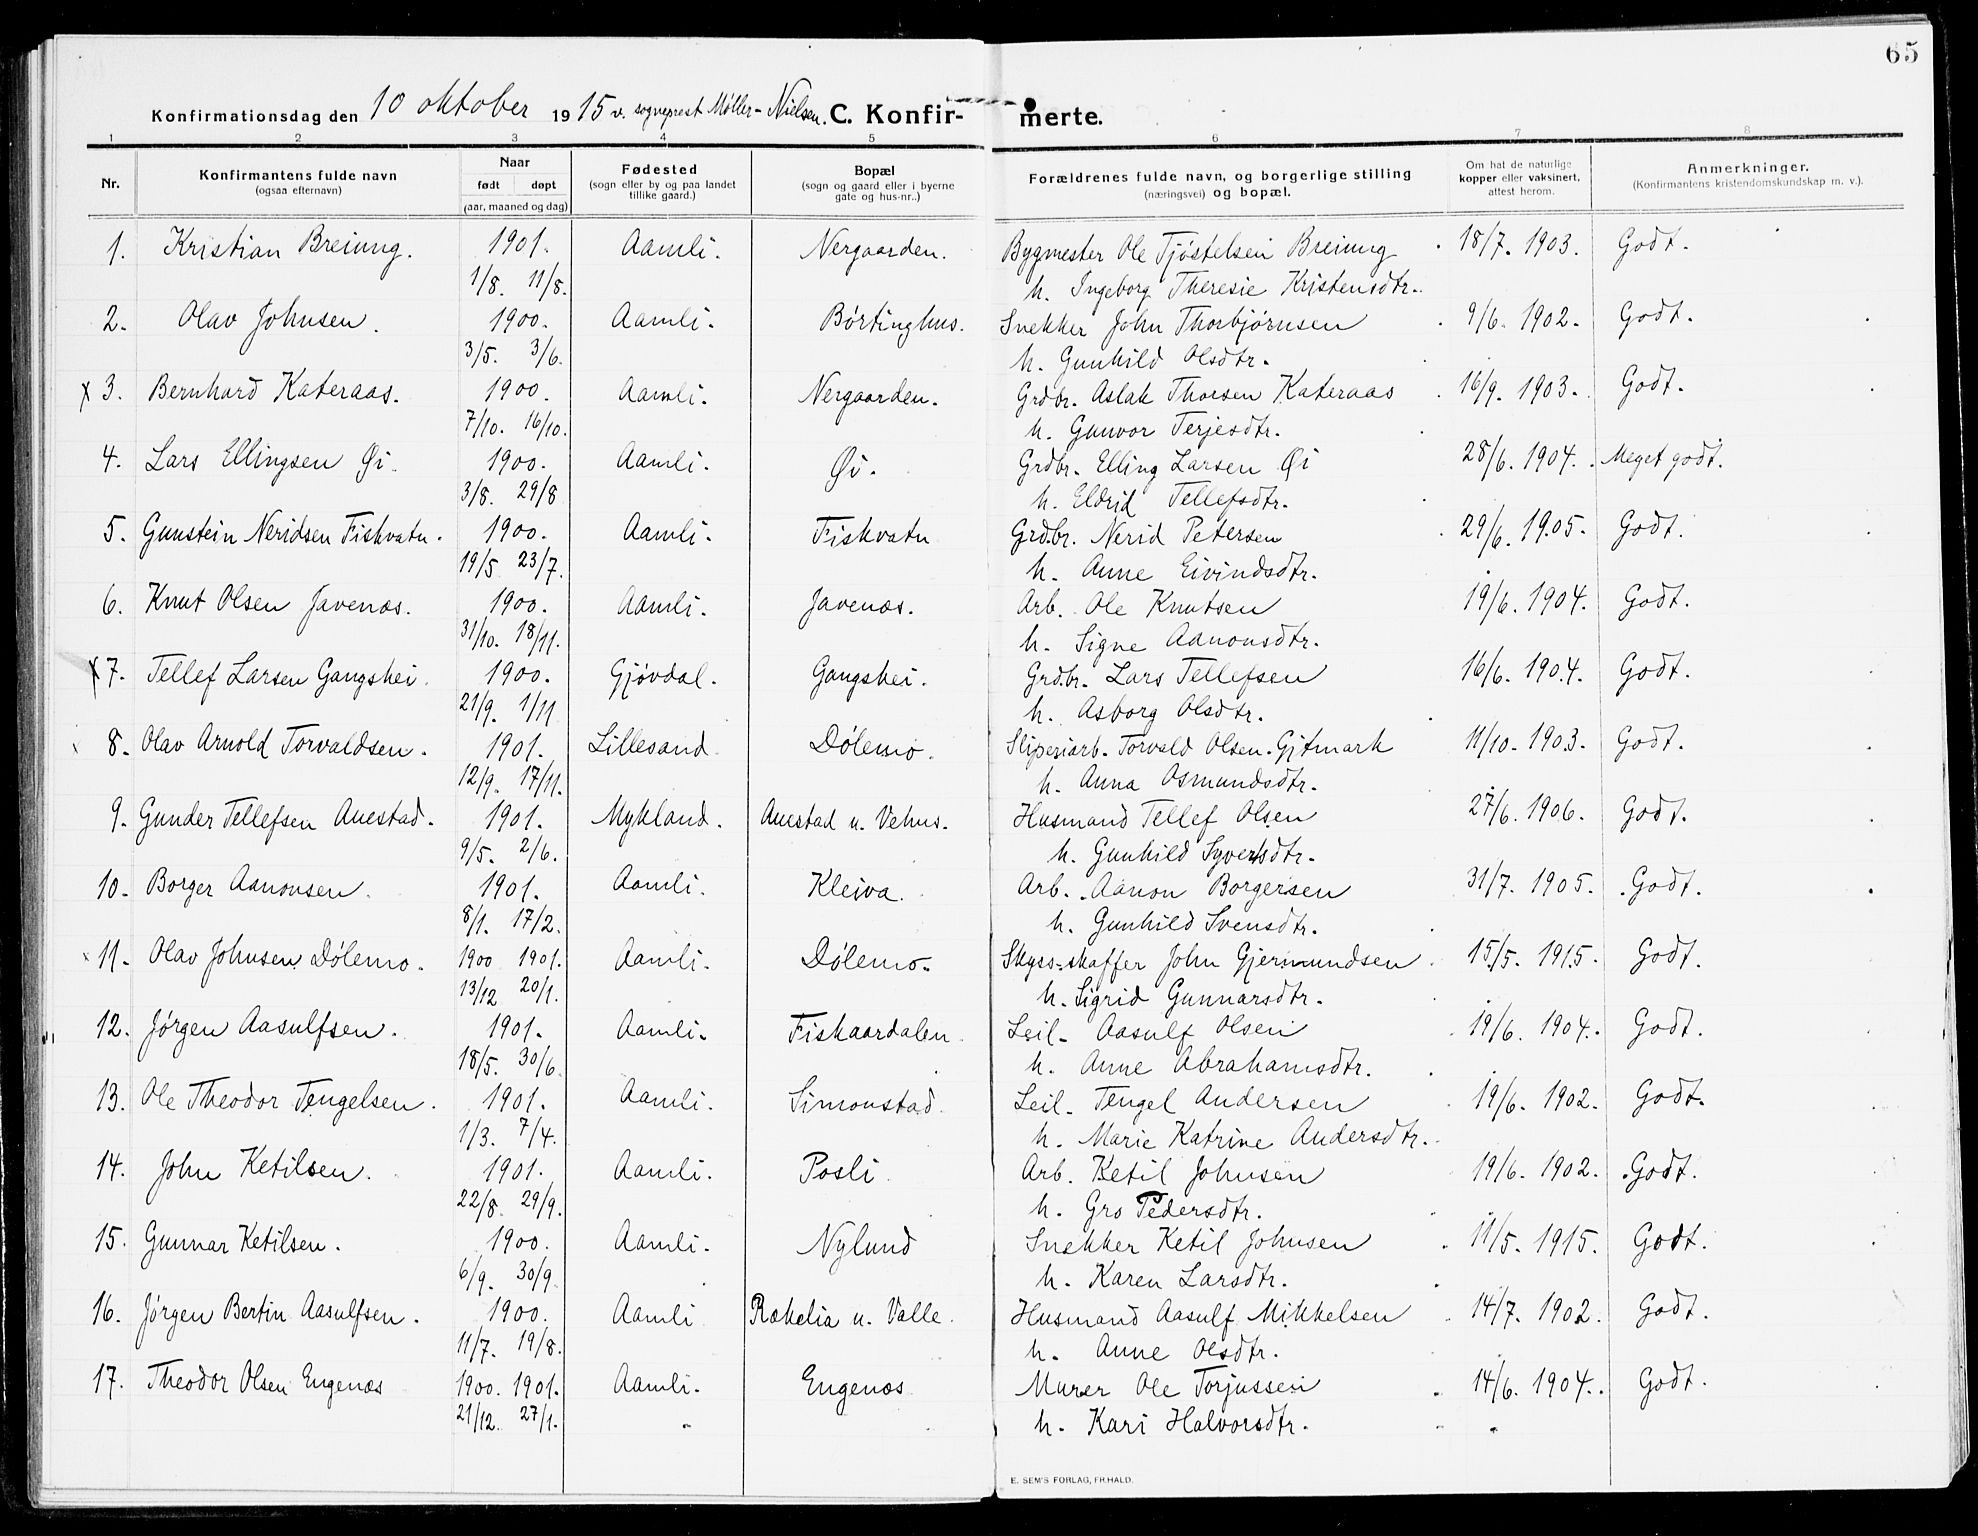 65
Konfirmationsdag den 10 oktober 1915 v. sogneprest Møller-Nielsen. C. Konfirmerte.
1 2 3 4 5 6 7 8
Nr. | Konfirmantens fulde navn (ogsaa efternavn) | Naar født døpt (aar, maaned og dag) | Fødested (sogn eller by og paa landet tillike gaard.) | Bopæl (sogn og gaard eller i byerne gate og hus-nr..) | Forældrenes fulde navn, og borgerlige stilling (næringsvei) og bopæl. | Om hat de naturlige kopper eller vaksinert, attest herom. | Anmerkninger. (Konfirmantens kristendomskundskap m. v.).
1. Kristian Breiung. 1901. Aamli. Nergaarden. Bygmester Ole Tjøstelsen Breiung 18/7. 1903. Godt.
1/8. 11/8. h. Ingeborg Theresie Kristensdtr.
2. Olav Johnsen. 1900. Aamli. Børtinghus. Snekker John Thorbjørnsen 9/6. 1902. Godt.
3/5. 3/6. h. Gunhild Olsdtr.
x 3. Bernhard Kateraas. 1900. Aamli. Nergaarden. Grdbr. Aslak Thorsen Kateraas 16/9. 1903. Godt.
7/10. 16/10. h. Gunvor Terjesdtr.
4. Lars Ellingsen Øi. 1900. Aamli. Øi. Grdbr. Elling Larsen Øi 28/6. 1904. Meget godt.
3/8. 29/8 h. Eldrid Tellefsdtr.
5. Gunstein Neridsen Fiskvatn. 1900. Aamli. Fiskvatn Grdbr. Nerid Petersen 29/6. 1905. Godt.
19/5 23/7. h. Anne Eivindsdtr.
6. Knut Olsen Javenæs. 1900. Aamli. Javenæs. Arb. Ole Knutsen 19/6. 1904. Godt.
31/10. 18/11. h. Signe Aanonsdtr.
x 7. Tellef Larsen Gangshei. 1900. Gjøvdal. Gangshei. Grdbr. Lars Tellefsen 16/6. 1904. Godt.
21/9. 1/11 h. Asborg Olsdtr.
8. Olav Arnold Torvaldsen. 1901. Lillesand. Dølemo. Sliperiarb. Torvald Olsen Gitmark 11/10. 1903. Godt.
12/9. 17/11. h. Anna Osmundsdtr.
9. Gunder Tellefsen Auestad. 1901. Mykland. Auestad u. Vehus. Husmand Tellef Olsen 27/6. 1906. Godt.
9/5. 2/6. h. Gunhild Syvertsdtr.
10. Borger Aanonsen. 1901. Aamli. Kleiva. Arb. Aanon Borgersen 31/7. 1905. Godt.
8/1. 17/2. h. Gunhild Svensdtr.
x 11. Olav Johnsen Dølemo. 1900 1901. Aamli. Dølemo. Skyss-skaffer John Gjermundsen 15/5. 1915. Godt.
13/12 20/1. h. Sigrid Gunnarsdtr.
12. Jørgen Aasulfsen. 1901. Aamli. Fiskaardalen. Leil. Aasulf Olsen 19/6. 1904. Godt.
18/5. 30/6. h. Anne Abrahamsdtr.
13. Ole Theodor Tengelsen. 1901. Aamli. Simonstad. Leil. Tengel Andersen 19/6. 1902. Godt.
1/3. 7/4. h. Marie Katrine Andersdtr.
14. John Ketilsen. 1901. Aamli. Posli Arb. Ketil Johnsen 19/6. 1902. Godt.
22/8. 29/9. h. Gro Pedersdtr.
15. Gunnar Ketilsen. 1900. Aamli. Nylund Snekker Ketil Johnsen 11/5. 1915. Godt.
6/9. 30/9. h. Karen Larsdtr.
16. Jørgen Bertin Aasulfsen. 1900. Aamli Rækelia u. Valle. Husmand Aasulf Mikkelsen 14/7. 1902. Godt.
11/7. 19/8. h. Anne Olsdtr.
17. Theodor Olsen Engenæs 1900. 1901. Aamli. Engenæs Murer Ole Torjussen 14/6. 1904. Godt.
21/12. 27/1. h. Kari Halvorsdtr.
E. SEM'S FORLAG, FR.HALD.